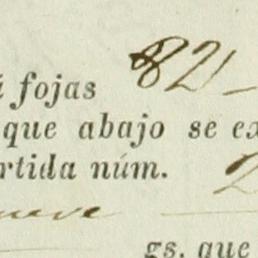 á fojas 821
que abajo se ex
rtida núm. 2
nueve
gs. que